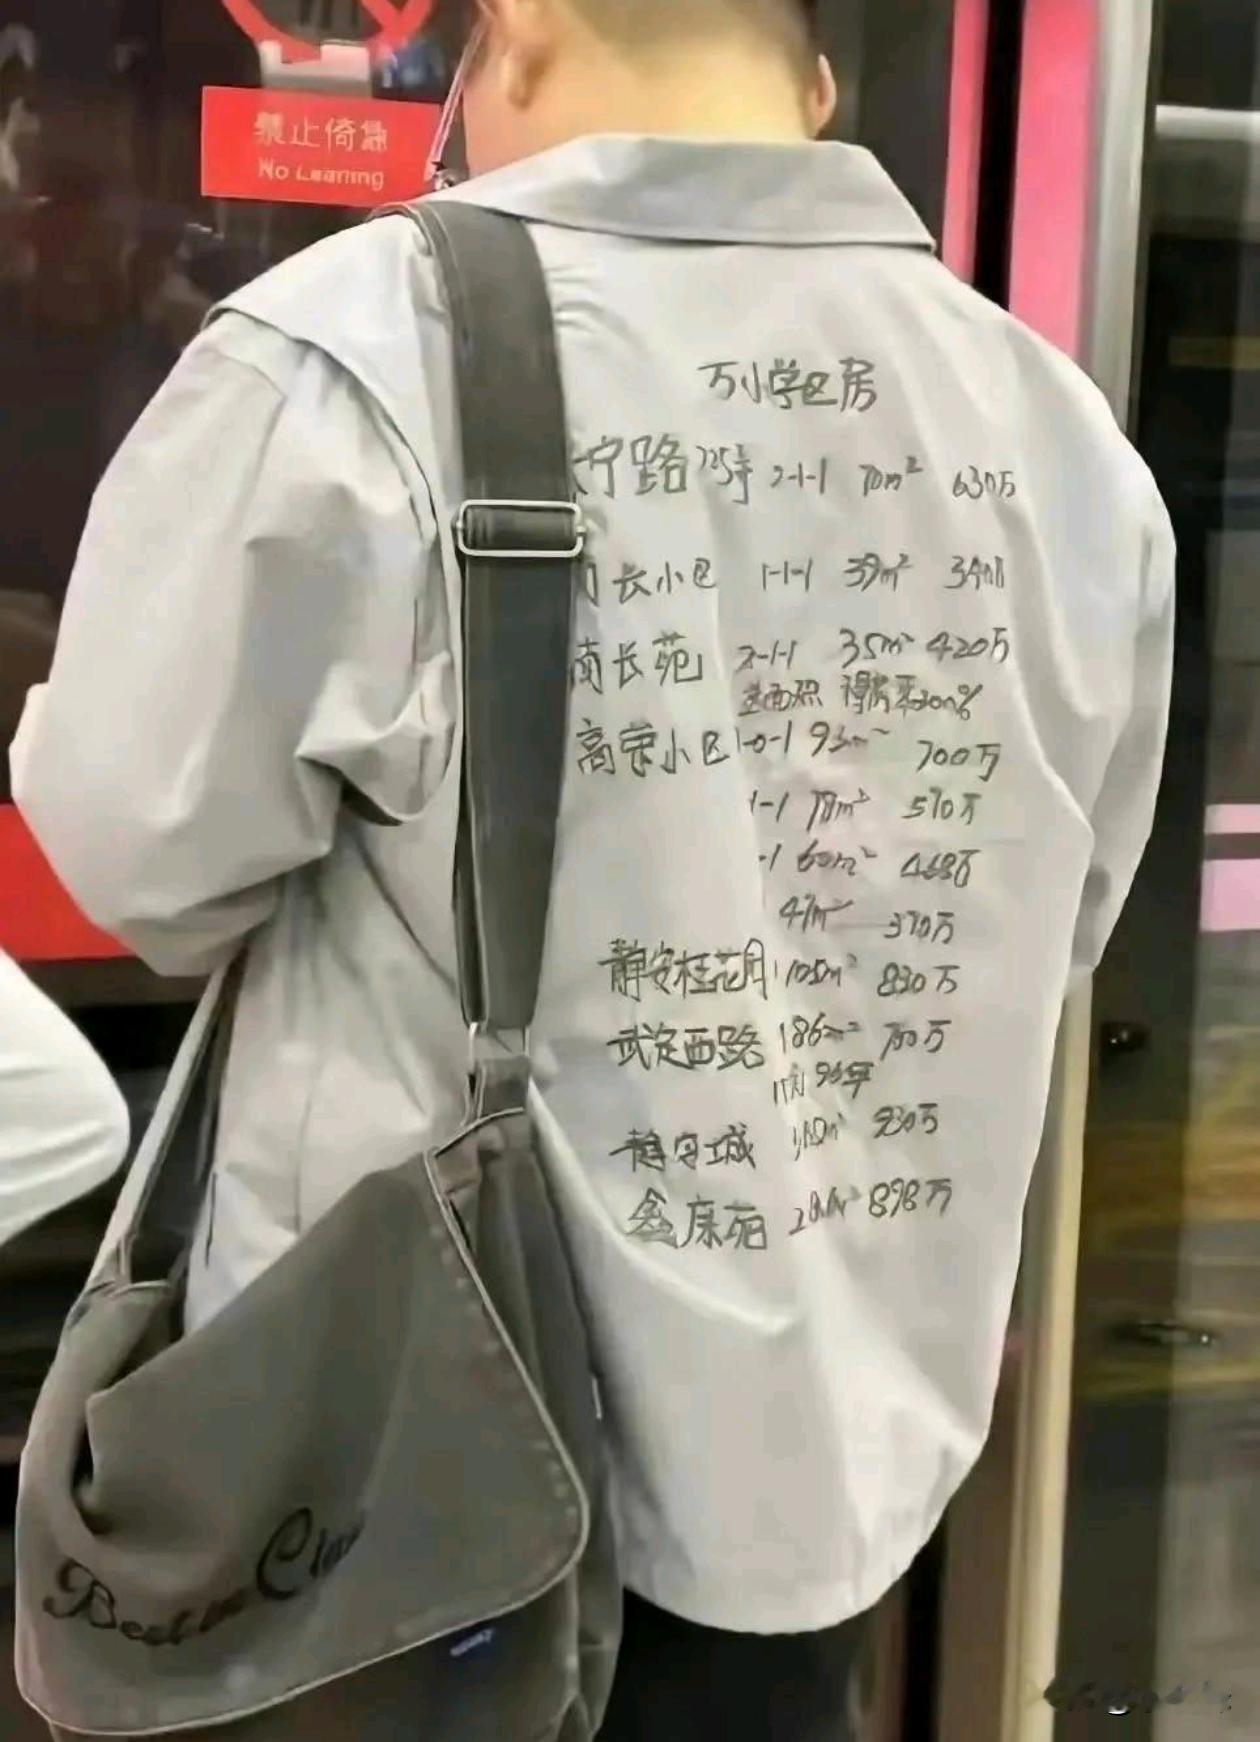 禁止倚靠
No Leaning
万小学区房
宁路 725号 2-1-1 70m² 630万
长小区 1-1-1 39m² 340万
南长苑 2-1-1 35m² 420万
面积 得房率200%
高荣小区 1-0-1 93m² 700万
1-1 78m² 570万
-1 60m² 468万
47m² 370万
静安桂花园 105m² 830万
武定西路 186m² 700万
95年
静安城 930万
鑫康苑 898万